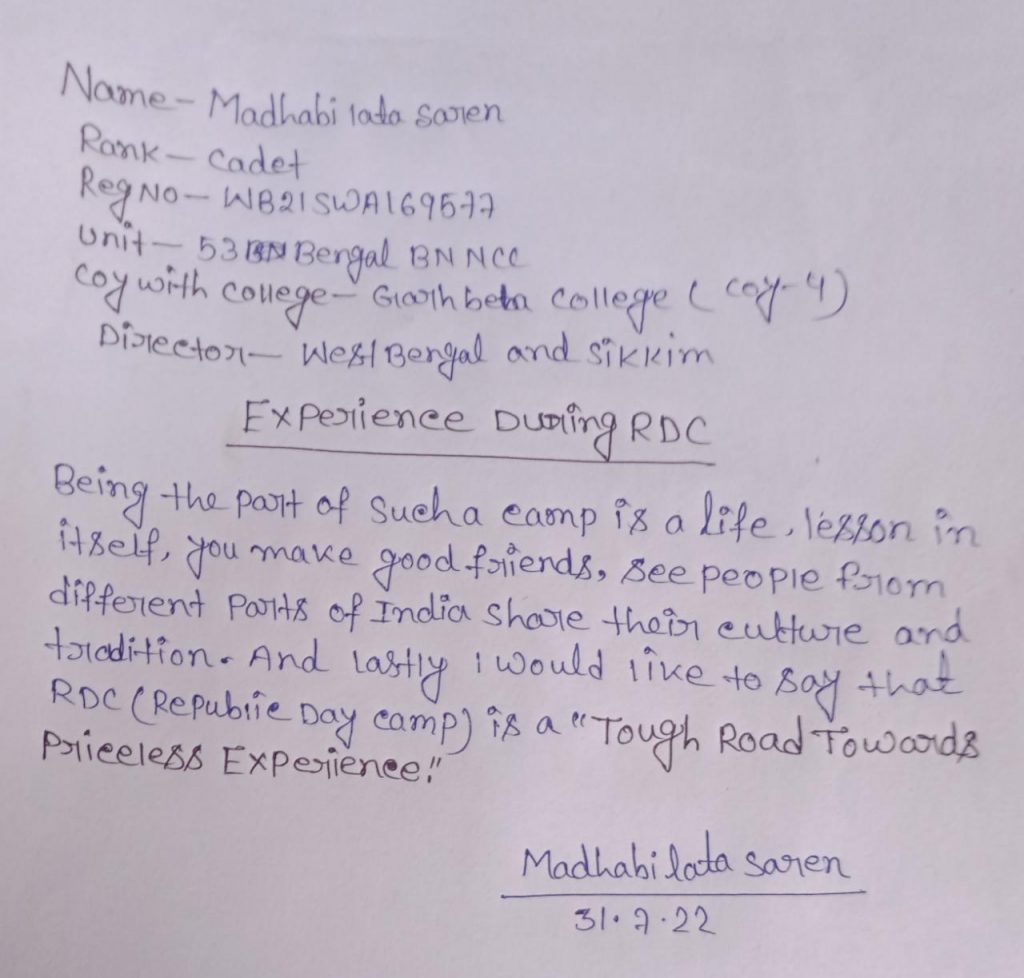 Name - Madhabi lata saren
Rank - Cadet
Reg No - WB21SWA169577
Unit - 53 BN Bengal BN NCC
Coy with college - Garhbeta College (coy-4)
Director - West Bengal and Sikkim
Experience During RDC
Being the part of such a camp is a life, lesson in
itself, you make good friends, see people from
different parts of India share their culture and
tradition. And lastly i would like to say that
RDC (Republic Day camp) is a "Tough Road Towards
Priceless Experience!"
Madhabi lata saren
31.7.22